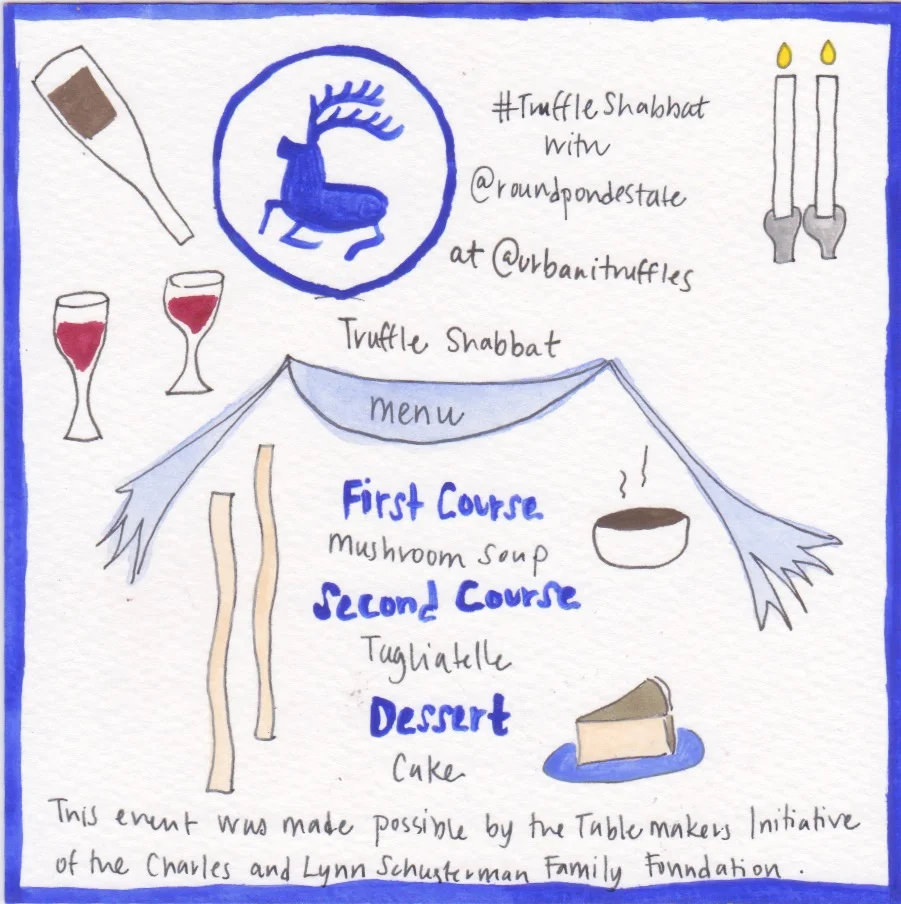 #TruffleShabbat
with
@roundpondestate
at @urbanitruffles
Truffle Shabbat
menu
First Course
Mushroom Soup
Second Course
Tagliatelle
Dessert
Cake
This event was made possible by the Tablemakers Initiative
of the Charles and Lynn Schusterman Family Foundation.